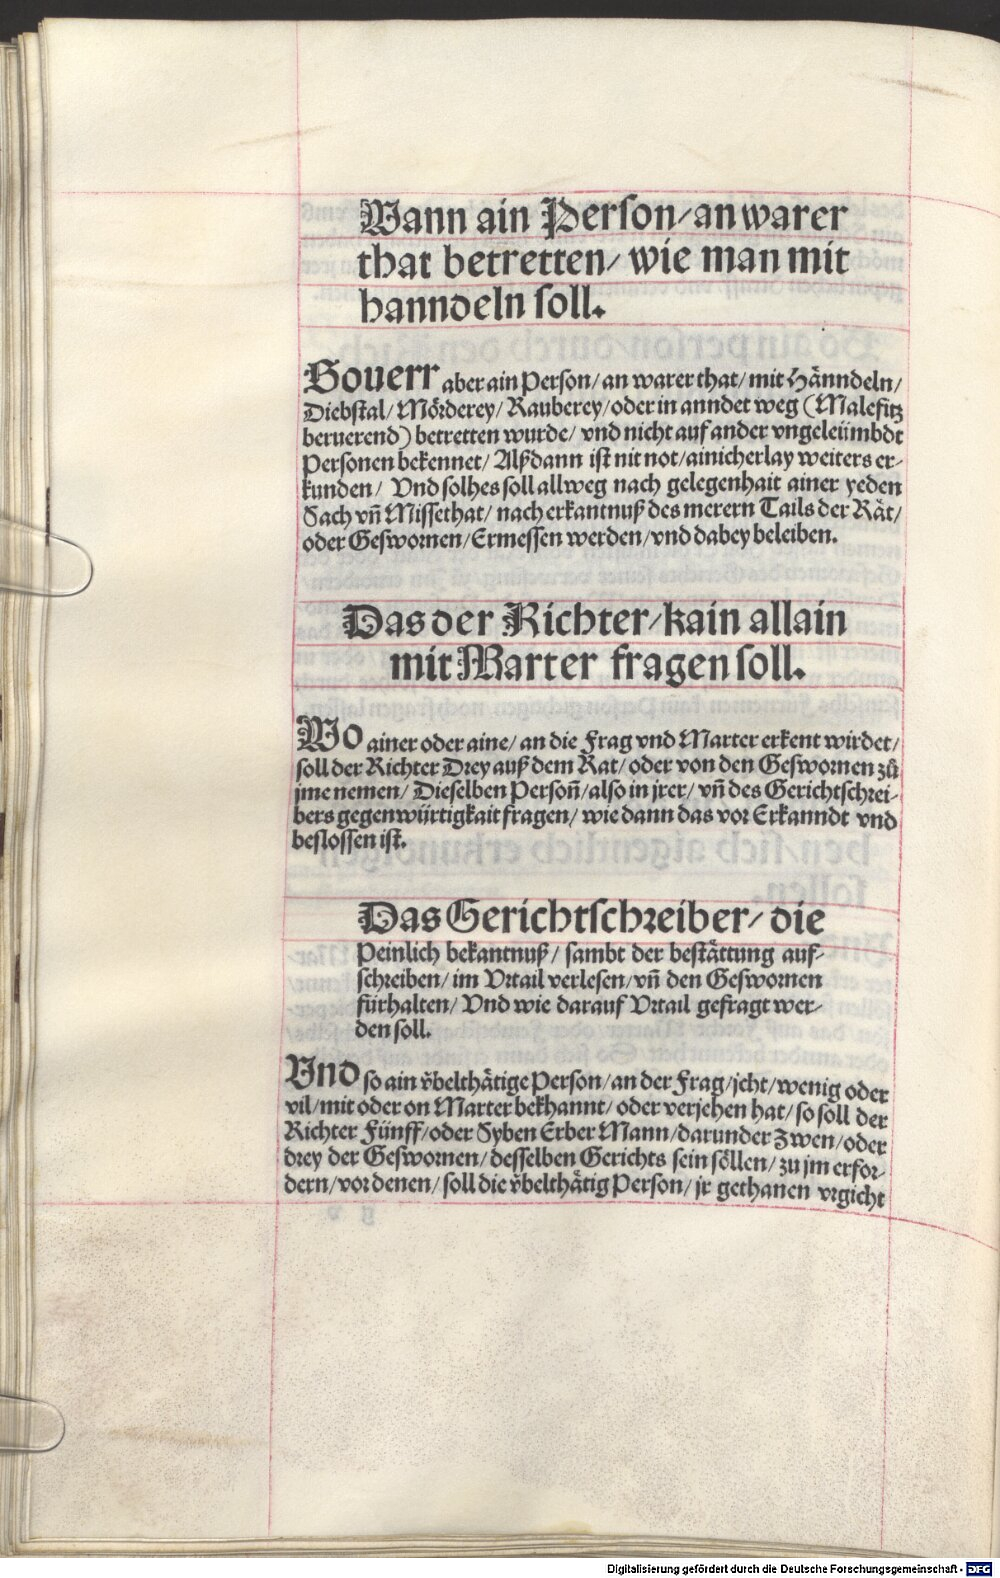 Wann ain Person/ an warer
that betretten/ wie man mit
hanndeln soll.
Souerr aber ain Person/ an warer that/ mit Hänndeln/
Diebstal/ Mörderey/ Rauberey/ oder in anndet weg (Malefitz
beruerend) betretten wurde/ vnd nicht auf ander vngeleümbdt
Personen bekennet/ Alßdann ist nit not/ ainicherlay weiters er-
kunden/ Vnd solhes soll allweg nach gelegenhait ainer yeden
Sach vñ Missethat/ nach erkantnuß des merern Tails der Rät/
oder Geswornen/ Ermessen werden/ vnd dabey beleiben.
Das der Richter/ kain allain
mit Marter fragen soll.
Wo ainer oder aine/ an die Frag vnd Marter erkent wirdet/
soll der Richter Drey auß dem Rat/ oder von den Geswornen zů
jme nemen/ Dieselben Persoñ/ also in jrer/ vñ des Gerichtschrei-
bers gegenwürtigkait fragen/ wie dann das vor Erkanndt vnd
beslossen ist.
Das Gerichtschreiber/ die
Peinlich bekantnuß/ sambt der bestättung auf-
schreiben/ im Vrtail verlesen/ vñ den Geswornen
fürhalten/ Vnd wie darauf Vrtail gefragt wer-
den soll.
Vnd so ain v̈belthätige Person/ an der Frag/ jcht/ wenig oder
vil/ mit oder on Marter bekhannt/ oder verjehen hat/ so soll der
Richter Fünff/ oder Syben Erber Mann/ darunder Zwen/ oder
drey der Geswornen/ desselben Gerichts sein söllen/ zu jm erfor-
dern/ vor denen/ soll die v̈belthätig Person/ jr gethanen vrgicht
Digitalisierung gefördert durch die Deutsche Forschungsgemeinschaft - DFG